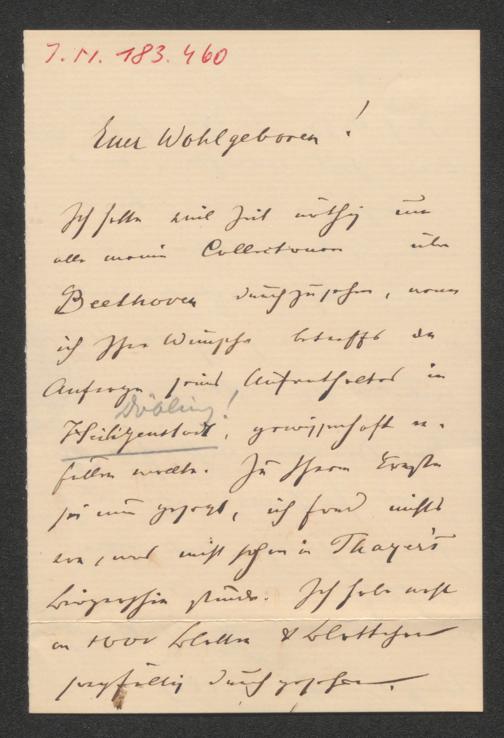 J. N. 183.460
Euer Wohlgeboren!
Ich hatte viel Zeit nöthig um
alle meine Collectionen über
Beethoven durchzusehen, wenn
ich Ihre Wünsche betreffs der
Anfrage seines Aufenthaltes in
Döbling!
Heiligenstadt, gewissenhaft er-
füllen wollte. Zu Ihrem
sei nun gesagt, ich fand nichts
was nicht schon in Thayer's
Biographie stünde. Ich habe
an 1000 Blätter & Blättchen
sorgfältig durchgesehen.